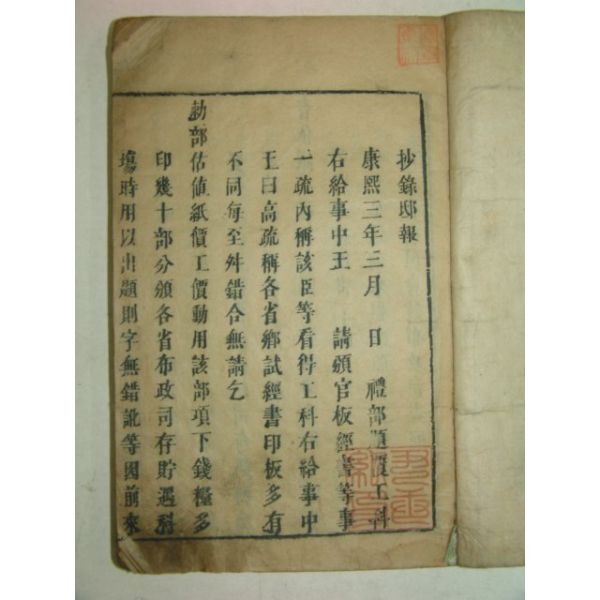 抄錄邸報
康熙三年三月 日 禮部題覆工科
右給事中王 請頒官板經書等事
一疏內稱該臣等看得工科右給事中
王曰高疏稱各省鄉試經書印板多有
不同每至舛錯合無請乞
勅部估値紙價工價動用該部項下錢糧多
印幾十部分頒各省布政司存貯遇科
塲時用以出題則字無錯訛等因前來